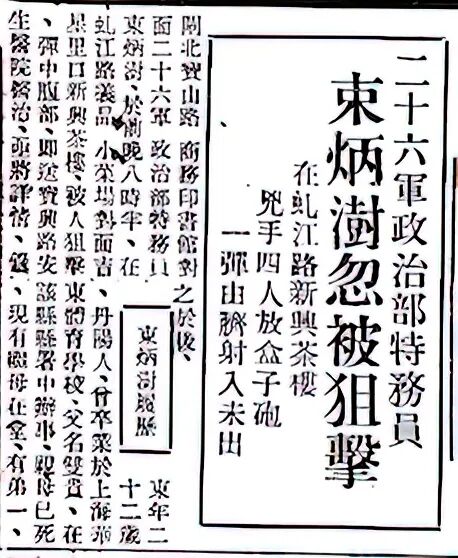 二十六軍政治部特務員
束炳澍忽被狙擊
在虬江路新興茶樓
兇手四人放盒子砲
一彈由臍射入未出
閘北寶山路商務印書館對
面二十六軍政治部特務員
束炳澍、於前晚八時半、在
虬江路義品小菜場對面吉
星里口新興茶樓、被人狙擊
、彈中腹部、即送寶興路安
生醫院醫治、茲將詳情、錄
之於後、
束炳澍履歷
束年二
十二歲
、丹陽人、曾卒業於上海
東體育學校、父名雙貴、在
該縣縣署中辦事、親母已死
、現有繼母在堂、有弟一、